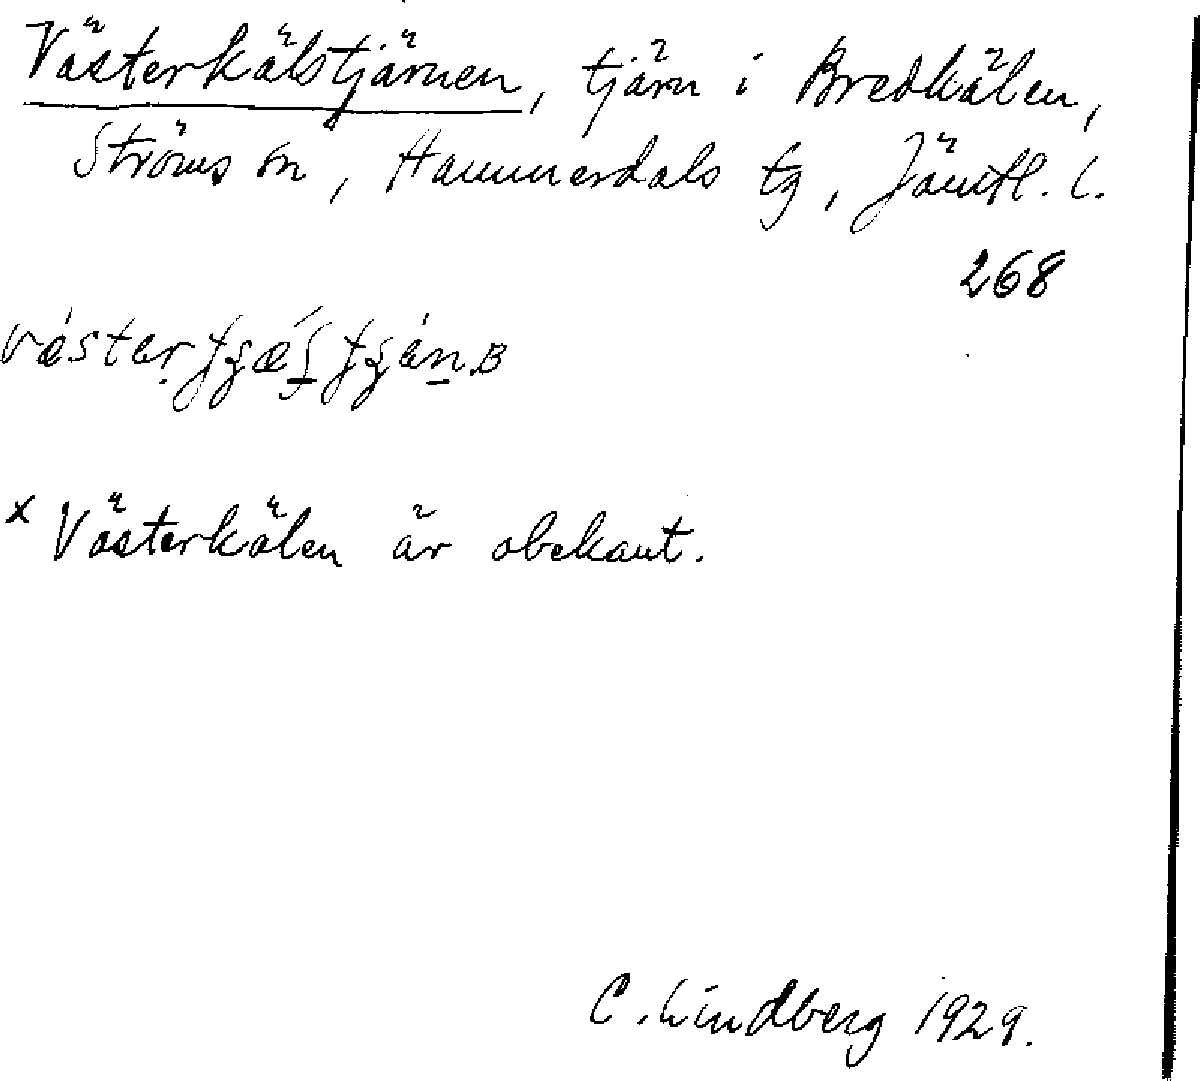 Västerkälstjärnen, tjärn i Bredkälen,
Ströms sn, Hammerdals tg, Jämtl. l.
268
× Västerkälen är obekant.
C. Lindberg 1929.